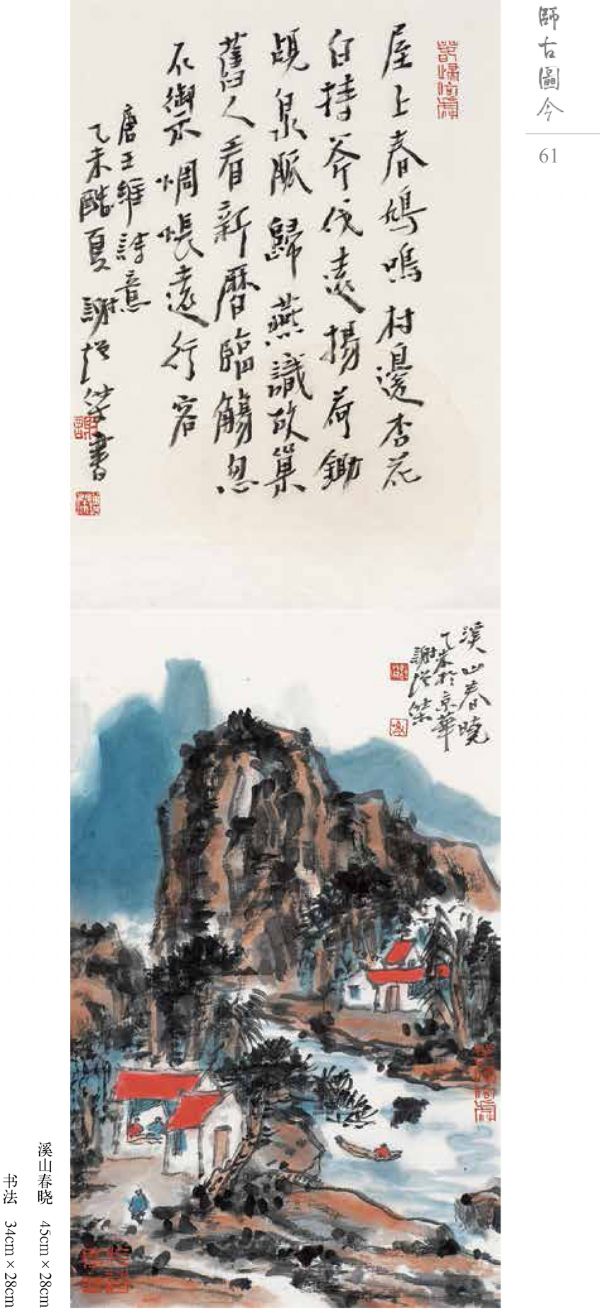 師古圖今
61
屋上春鳩鳴村邊杏花
白持斧伐遠揚荷鋤
覘泉脈歸燕識故巢
舊人看新曆臨觴忽
不禦惆悵遠行客
唐王維詩意
乙未酷夏 謝書
溪山春曉
乙未於京華
謝
溪山春晓 45cm×28cm
书法 34cm×28cm